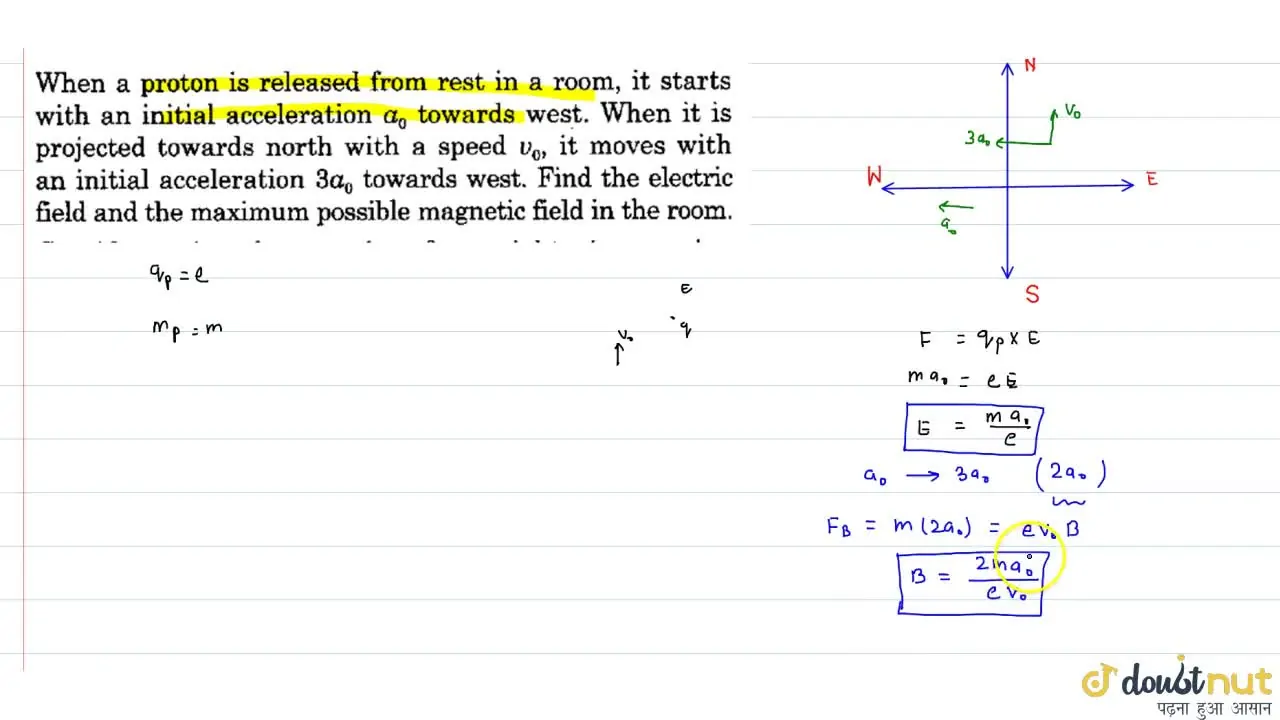 When a proton is released from rest in a room, it starts
with an initial acceleration a₀ towards west. When it is
projected towards north with a speed v₀, it moves with
an initial acceleration 3a₀ towards west. Find the electric
field and the maximum possible magnetic field in the room.
N
v₀
3a₀
W
E
a₀
S
qₚ = e
mₚ = m
E
q
v₀
F = qₚ × E
ma₀ = eE
E = ma₀/e
a₀ → 3a₀ (2a₀)
F_B = m(2a₀) = ev₀B
B = 2ma₀/ev₀
doubtnut
पढ़ना हुआ आसान